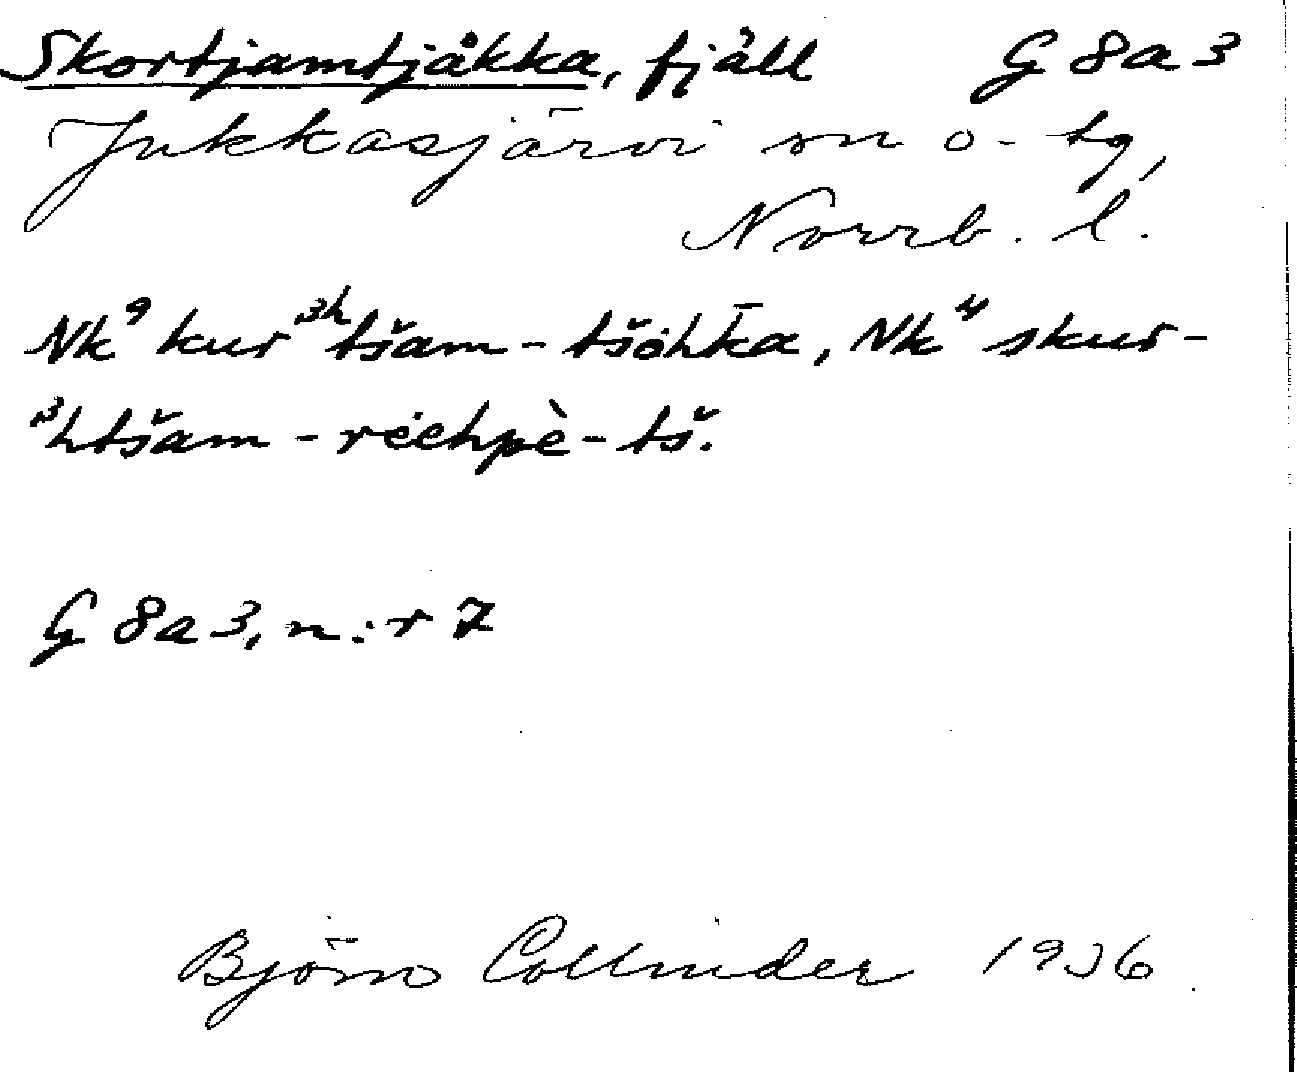 Skortjamtjåkka, fjäll G 8a 3
Jukkasjärvi sn o- tg,
Norrb. l.
Nk⁹ kur³ʰtšam-tšohk̄a, Nk⁴ skur-
³htšam-rėehpè-tš.
G 8a 3, n:r 7
Björn Collinder 1936